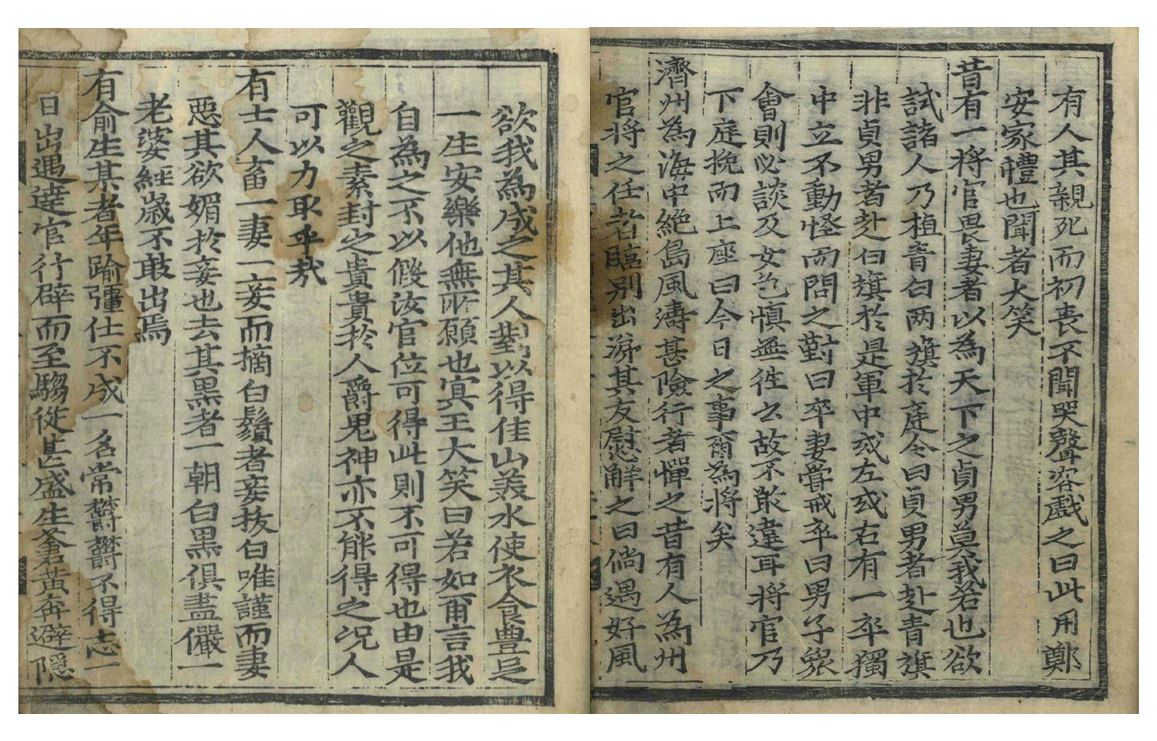 有人其親死而初喪不聞哭聲客戲之曰此用鄭
安家禮也聞者大笑
昔有一將官畏妻者以為天下之貞男莫我若也欲
試諸人乃植青白两旗於庭令曰貞男者赴青旗
非貞男者赴白旗於是軍中或左或右有一卒獨
中立不動怪而問之對曰卒妻嘗戒卒曰男子聚
會則必談及女色慎無徃云故不敢違耳將官乃
下庭挽而上座曰今日之事爾為將矣
濟州為海中絶島風濤甚險行者憚之昔有人為州
官將之任者臨别出涕其友慰解之曰倘遇好風
欲我為成之其人對以得佳山美水使衣食豊足
一生安樂他無所願也冥王大笑曰若如爾言我
自為之不以假汝官位可得此則不可得也由是
觀之素封之貴貴於人爵鬼神亦不能得之况人
可以力取乎哉
有士人畜一妻一妾而摘白鬚者妾拔白唯謹而妻
惡其欲媚於妾也去其黒者一朝白黒俱盡儼一
老婆經歳不敢出焉
有俞生某者年踰彊仕不成一名常欝欝不得志一
日出遇達官行辟而至騶從甚盛生蒼黃奔避隠